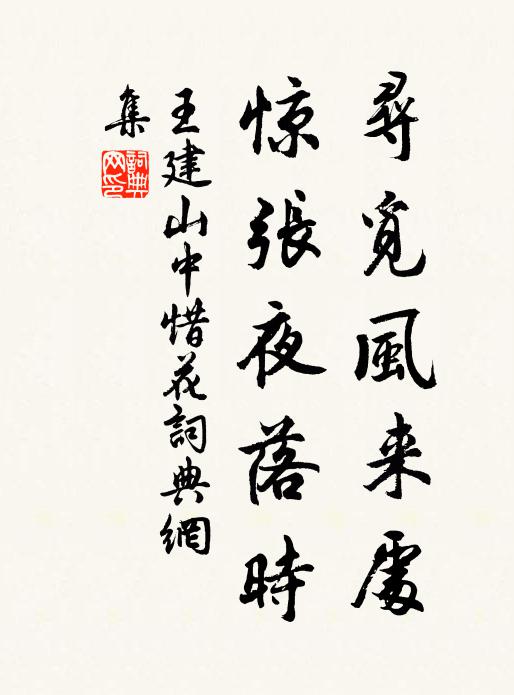 尋覓風来處
惊張夜落時
王建山中惜花詞典網
集
詞典
网印